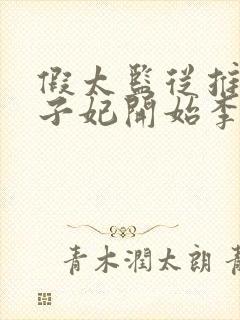 假太監從推
子妃開始李
青木潤太朗 青